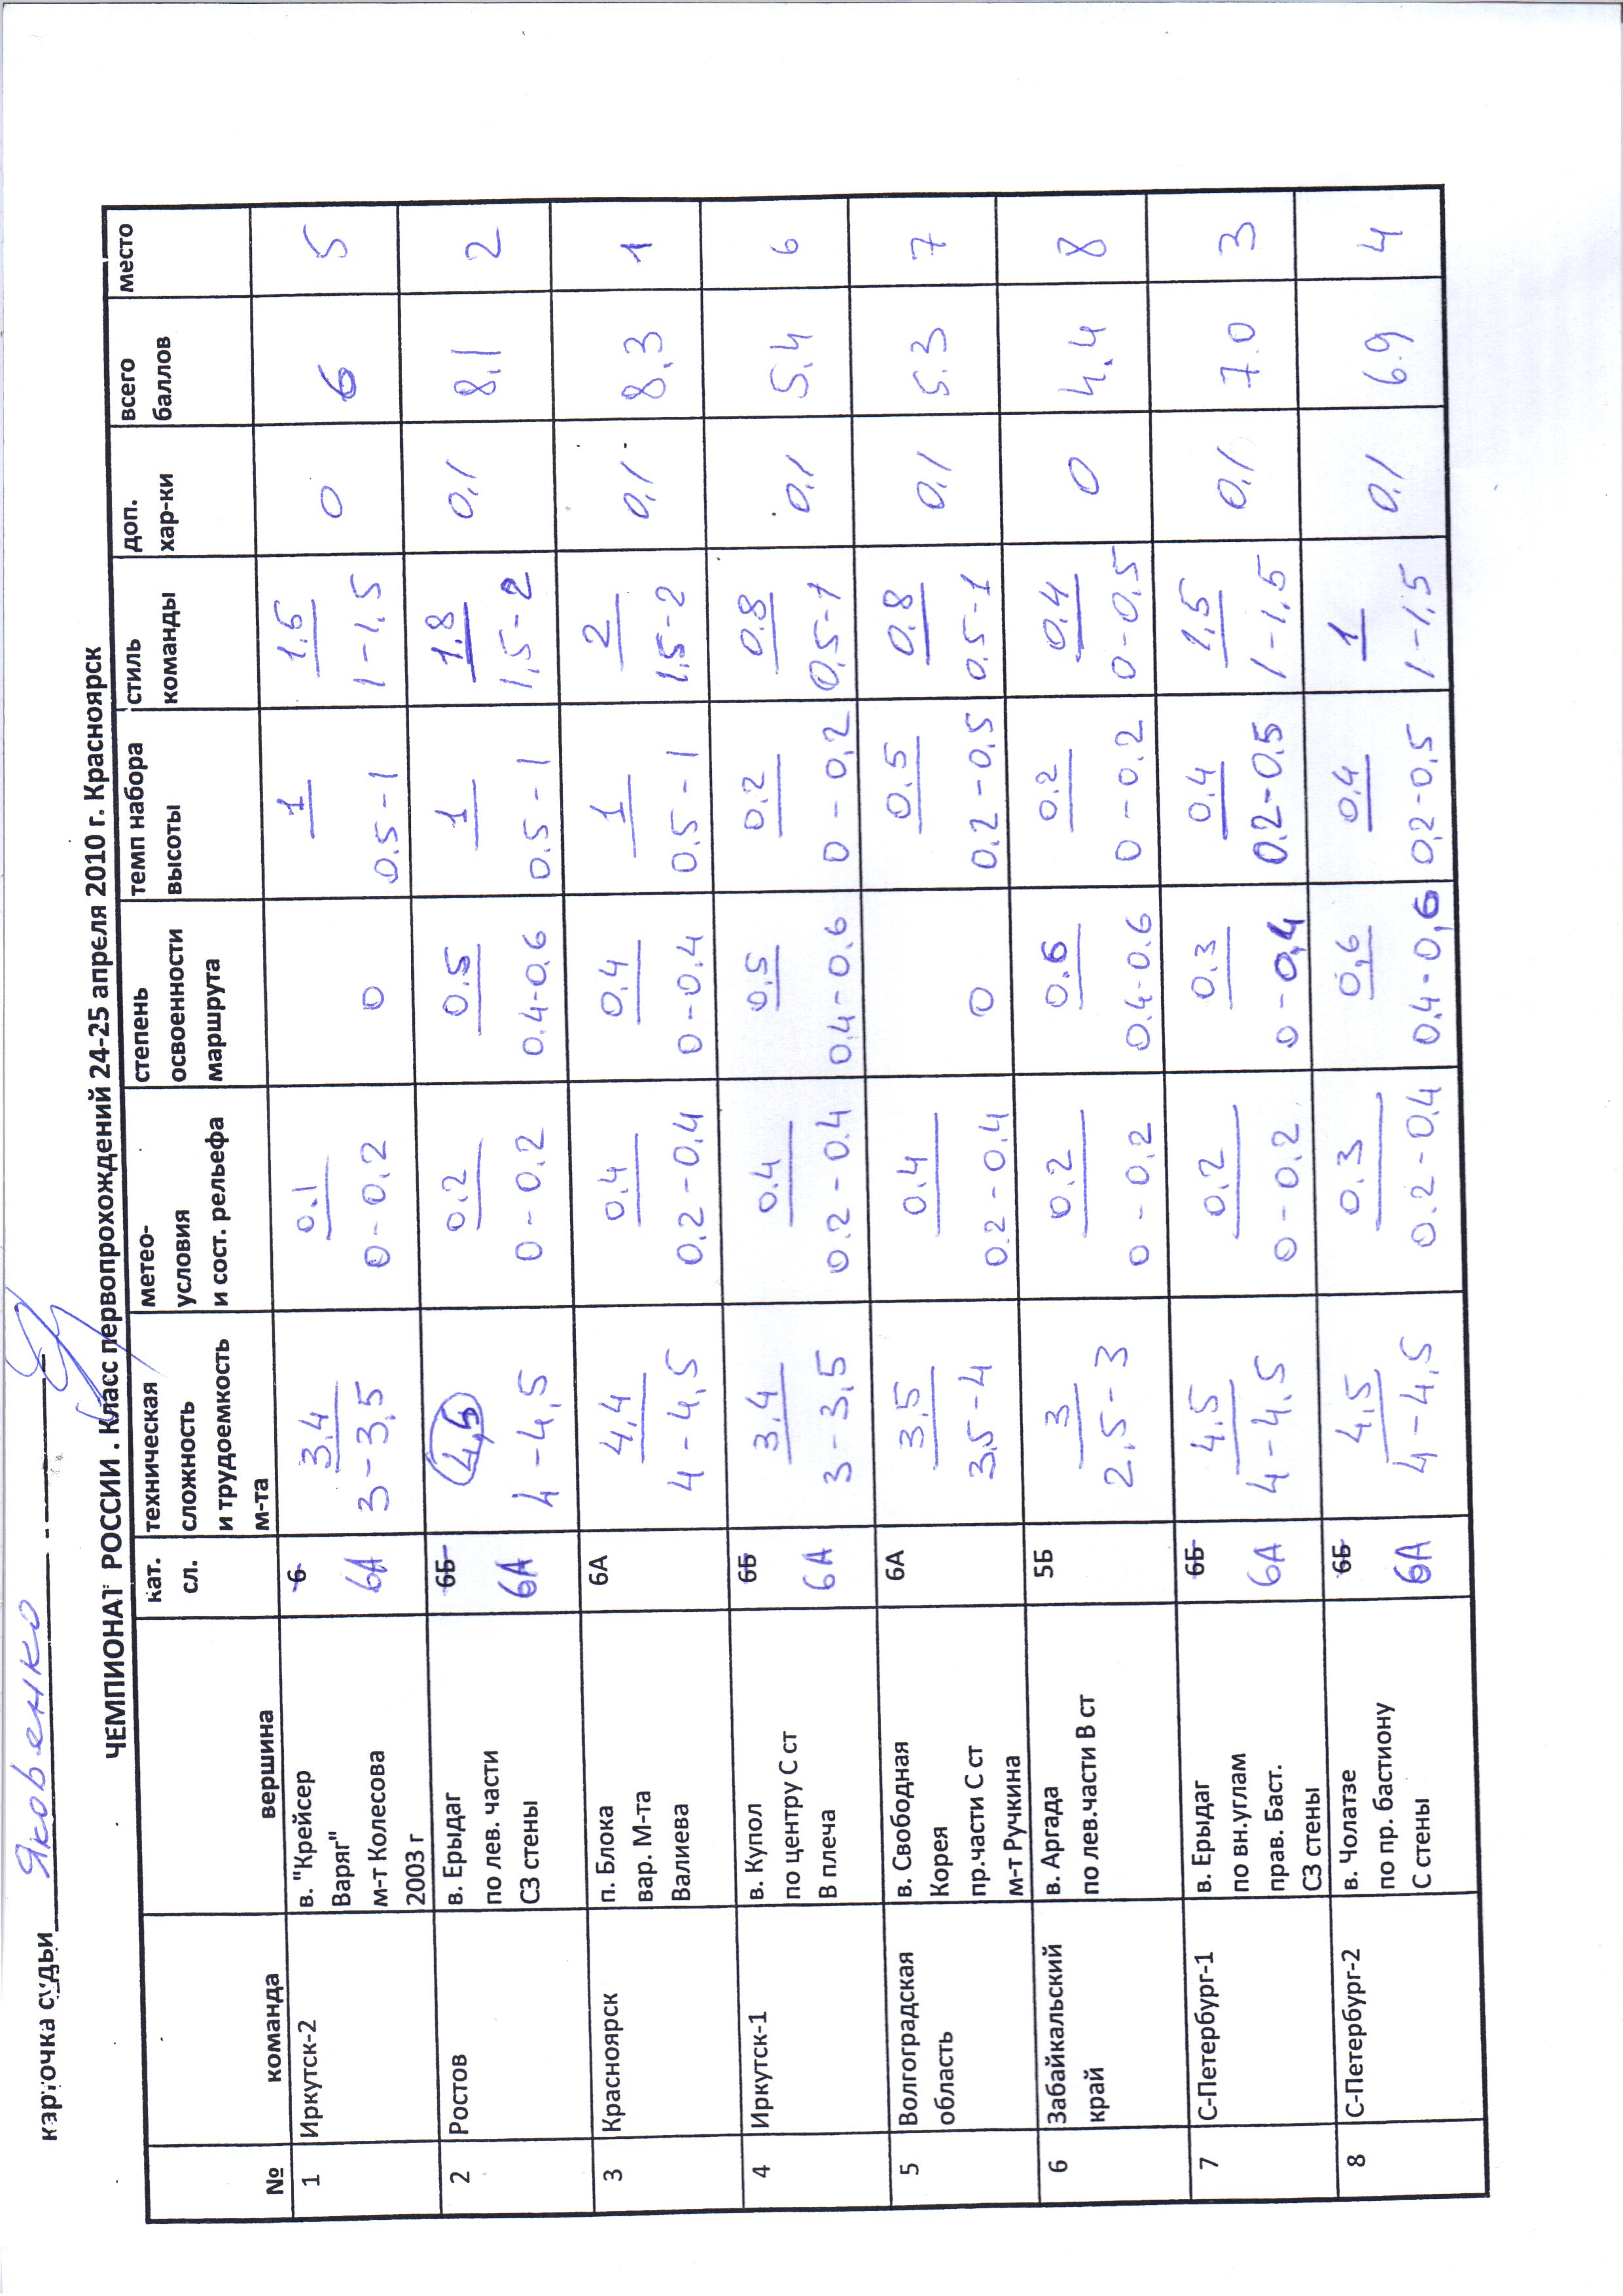 карточка судьи Яковенко
ЧЕМПИОНАТ РОССИИ . Класс первопрохождений 24-25 апреля 2010 г. Красноярск
№ команда вершина кат. сл. техническая сложность и трудоемкость м-та метео- условия и сост. рельефа степень освоенности маршрута темп набора высоты стиль команды доп. хар-ки всего баллов место
1 Иркутск-2 в. "Крейсер 6 3.4 0.1 1 1.5 0 6 5
Варяг" 6А 3-3.5 0-0.2 0 0.5-1 1-1,5
м-т Колесова
2003 г
2 Ростов в. Ерыдаг 6Б 4,5 0.2 0.5 1 1.8 0,1 8,1 2
по лев. части 6А 4-4,5 0-0.2 0.4-0.6 0.5-1 1,5-2
СЗ стены
3 Красноярск п. Блока 6А 4.4 0.4 0.4 1 2 0,1 8.3 1
вар. М-та 4-4,5 0.2-0.4 0-0.4 0.5-1 1.5-2
Валиева
4 Иркутск-1 в. Купол 6Б 3.4 0.4 0.5 0.2 0.8 0.1 5.4 6
по центру С ст 6А 3-3,5 0.2-0.4 0.4-0.6 0-0,2 0,5-1
В плеча
5 Волгоградская в. Свободная 6А 3.5 0.4 0.5 0.8 0.1 5.3 7
область Корея 3.5-4 0.2-0.4 0 0.2-0.5 0.5-1
пр.части С ст
м-т Ручкина
6 Забайкальский в. Аргада 5Б 3 0.2 0.6 0.2 0.4 0 4.4 8
край по лев.части В ст 2.5-3 0-0.2 0.4-0.6 0-0.2 0-0.5
7 С-Петербург-1 в. Ерыдаг 6Б 4.5 0.2 0.3 0.4 1.5 0.1 7.0 3
по вн.углам 6А 4-4.5 0-0.2 0-0,4 0.2-0.5 1-1,5
прав. Баст.
СЗ стены
8 С-Петербург-2 в. Чолатзе 6Б 4.5 0.3 0,6 0.4 1 0.1 6.9 4
по пр. бастиону 6А 4-4,5 0.2-0.4 0.4-0,6 0,2-0,5 1-1,5
С стены